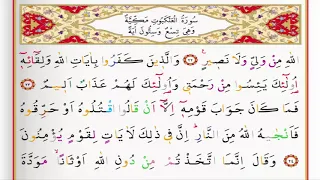 سُورَةُ الْعَنْكَبُوتِ مَكِّيَّةٌ
وَهِيَ تِسْعٌ وَسِتُّونَ آيَةً
اللّٰهِ مِنْ وَلِيٍّ وَلَا نَصِيرٍ ۟ ﴿٢٢﴾ وَالَّذِينَ كَفَرُوا بِاٰيَاتِ اللّٰهِ وَلِقَائِهِ
اُولٰئِكَ يَئِسُوا مِنْ رَحْمَتِي وَاُولٰئِكَ لَهُمْ عَذَابٌ اَلِيمٌ
فَمَا كَانَ جَوَابَ قَوْمِهِ اِلَّا اَنْ قَالُوا اقْتُلُوهُ اَوْ حَرِّقُوهُ
فَاَنْجٰيهُ اللّٰهُ مِنَ النَّارِ اِنَّ فِي ذٰلِكَ لَاٰيَاتٍ لِقَوْمٍ يُؤْمِنُونَ
﴿٢٤﴾ وَقَالَ اِنَّمَا اتَّخَذْتُمْ مِنْ دُونِ اللّٰهِ اَوْثَانًا مَوَدَّةَ